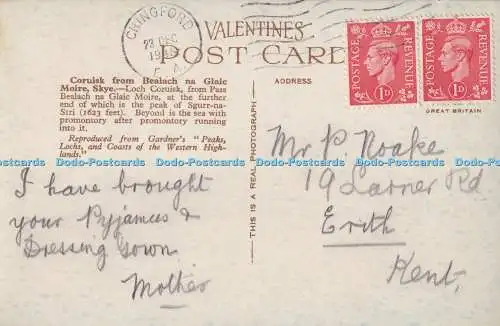 CHINGFORD
23 DEC
VALENTINES
POST CARD
POSTAGE REVENUE
1D
POSTAGE REVENUE
1D
GREAT BRITAIN
Coruisk from Bealach na Glaic
Moire, Skye.—Loch Coruisk, from Pass
Bealach na Glaic Moire, at the further
end of which is the peak of Sgurr-na-
Stri (1623 feet). Beyond is the sea with
promontory after promontory running
into it.
Reproduced from Gardner's "Peaks,
Lochs, and Coasts of the Western High-
lands."
THIS IS A REAL PHOTOGRAPH
ADDRESS
I have brought
your Pyjamas &
Dressing Gown
Mother
Mr P. Noake
19 Larner Rd
Erith
Kent.
Postcards-Postcards